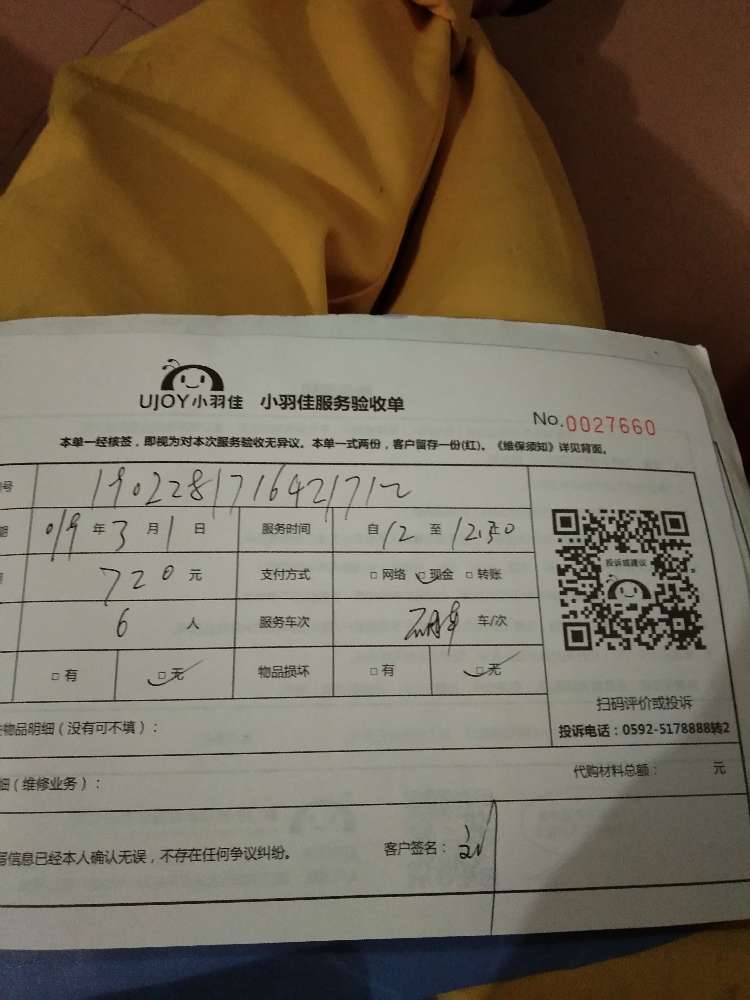 UJOY小羽佳 小羽佳服务验收单
No.0027660
本单一经核签，即视为对本次服务验收无异议。本单一式两份，客户留存一份(红)。《维保须知》详见背面。
号 190228171642171
019年3月1日 服务时间 自12至12:30
720元 支付方式 □网络 □现金 □转账
投诉或建议
6人 服务车次 车/次
□有 □无 物品损坏 □有 □无
扫码评价或投诉
物品明细（没有可不填）：
投诉电话：0592-5178888转2
细（维修业务）： 代购材料总额： 元
写信息已经本人确认无误，不存在任何争议纠纷。 客户签名：